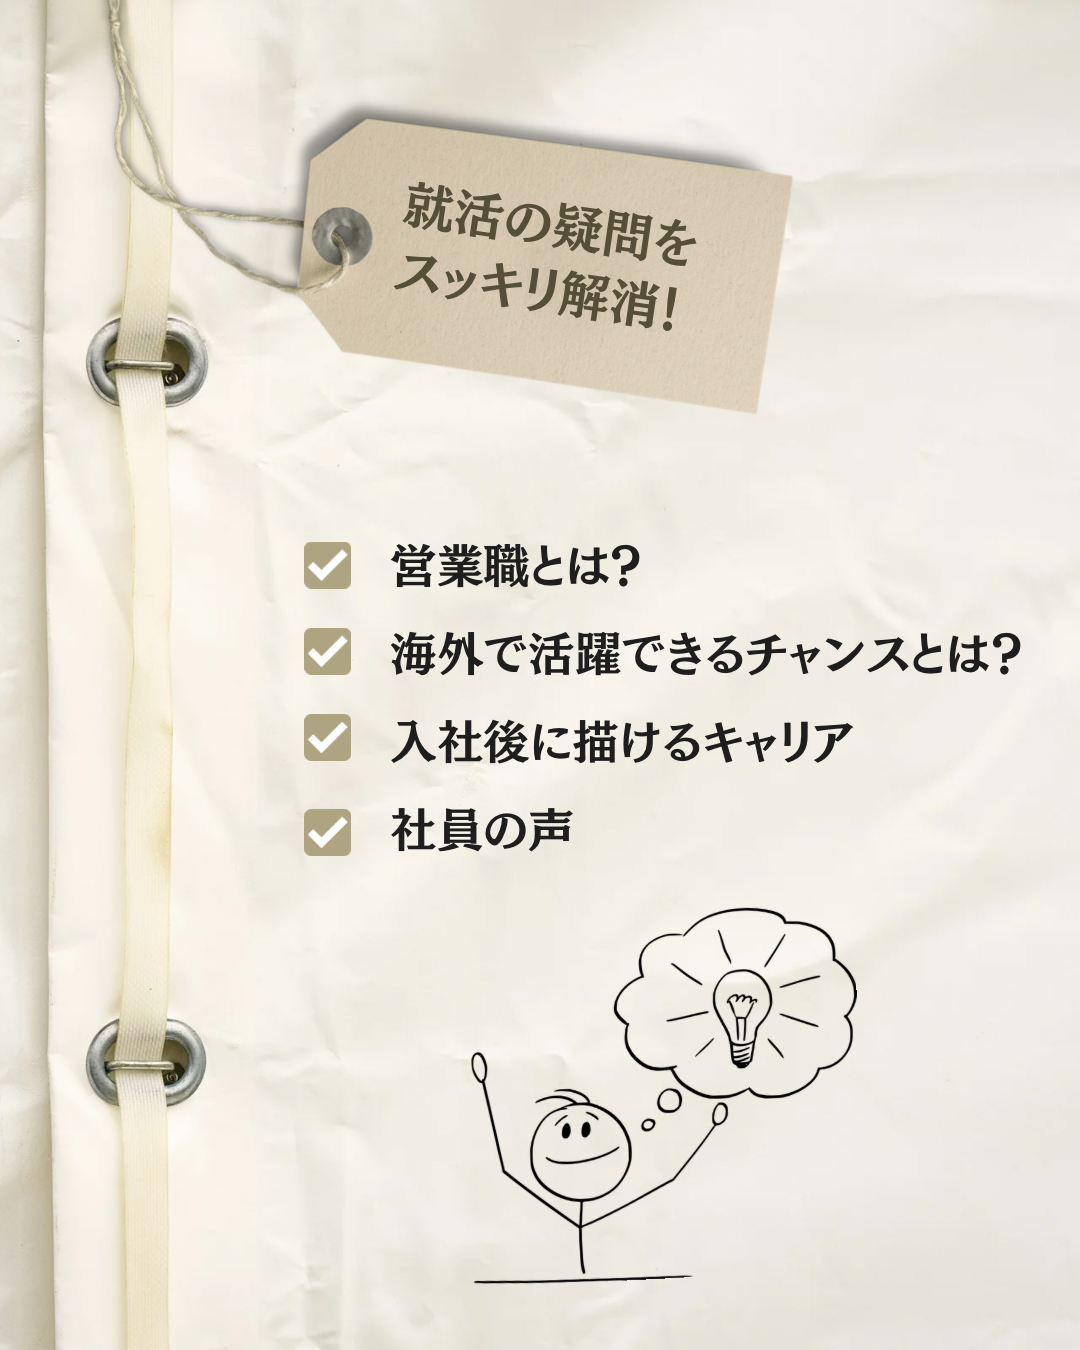 就活の疑問を
スッキリ解消！
営業職とは？
海外で活躍できるチャンスとは？
入社後に描けるキャリア
社員の声